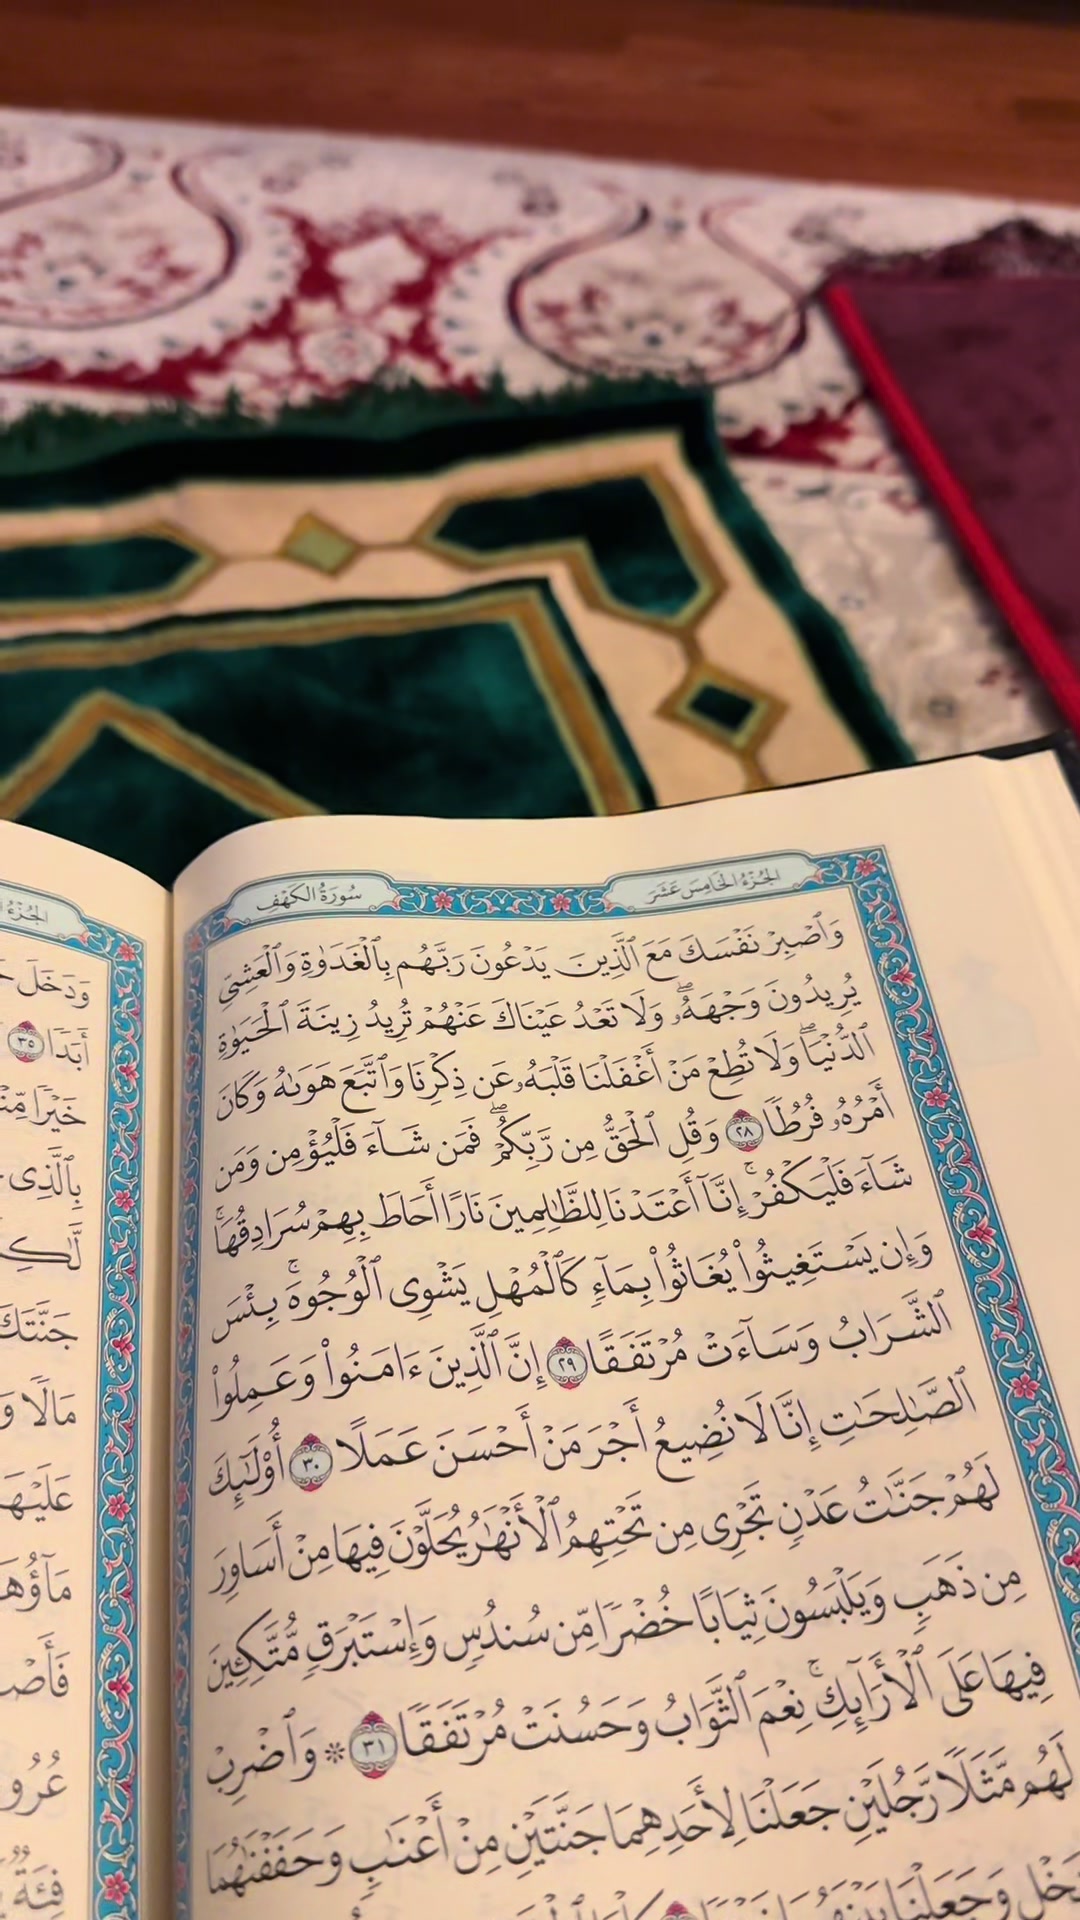 الجُزْءُ الخَامِسَ عَشَرَ
سُورَةُ الكَهْفِ
وَٱصْبِرْ نَفْسَكَ مَعَ ٱلَّذِينَ يَدْعُونَ رَبَّهُم بِٱلْغَدَوٰةِ وَٱلْعَشِىِّ
يُرِيدُونَ وَجْهَهُۥۖ وَلَا تَعْدُ عَيْنَاكَ عَنْهُمْ تُرِيدُ زِينَةَ ٱلْحَيَوٰةِ
ٱلدُّنْيَاۖ وَلَا تُطِعْ مَنْ أَغْفَلْنَا قَلْبَهُۥ عَن ذِكْرِنَا وَٱتَّبَعَ هَوَىٰهُ وَكَانَ
أَمْرُهُۥ فُرُطًا ٢٨ وَقُلِ ٱلْحَقُّ مِن رَّبِّكُمْۖ فَمَن شَآءَ فَلْيُؤْمِن وَمَن
شَآءَ فَلْيَكْفُرْۚ إِنَّآ أَعْتَدْنَا لِلظَّٰلِمِينَ نَارًا أَحَاطَ بِهِمْ سُرَادِقُهَاۚ
وَإِن يَسْتَغِيثُوا۟ يُغَاثُوا۟ بِمَآءٍ كَٱلْمُهْلِ يَشْوِى ٱلْوُجُوهَۚ بِئْسَ
ٱلشَّرَابُ وَسَآءَتْ مُرْتَفَقًا ٢٩ إِنَّ ٱلَّذِينَ ءَامَنُوا۟ وَعَمِلُوا۟
ٱلصَّٰلِحَٰتِ إِنَّا لَا نُضِيعُ أَجْرَ مَنْ أَحْسَنَ عَمَلًا ٣٠ أُو۟لَٰٓئِكَ
لَهُمْ جَنَّٰتُ عَدْنٍ تَجْرِى مِن تَحْتِهِمُ ٱلْأَنْهَٰرُ يُحَلَّوْنَ فِيهَا مِنْ أَسَاوِرَ
مِن ذَهَبٍ وَيَلْبَسُونَ ثِيَابًا خُضْرًا مِّن سُندُسٍ وَإِسْتَبْرَقٍ مُّتَّكِـِٔينَ
فِيهَا عَلَى ٱلْأَرَآئِكِۚ نِعْمَ ٱلثَّوَابُ وَحَسُنَتْ مُرْتَفَقًا ٣١ ۞ وَٱضْرِبْ
لَهُم مَّثَلًا رَّجُلَيْنِ جَعَلْنَا لِأَحَدِهِمَا جَنَّتَيْنِ مِنْ أَعْنَٰبٍ وَحَفَفْنَٰهُمَا
وَجَعَلْنَا
الجُزْءُ
وَدَخَلَ
أَبَدًا ٣٥
خَيْرًا
بِٱلَّذِى
جَنَّتَكَ
مَالًا
مَآؤُهَا
فِئَةٌ